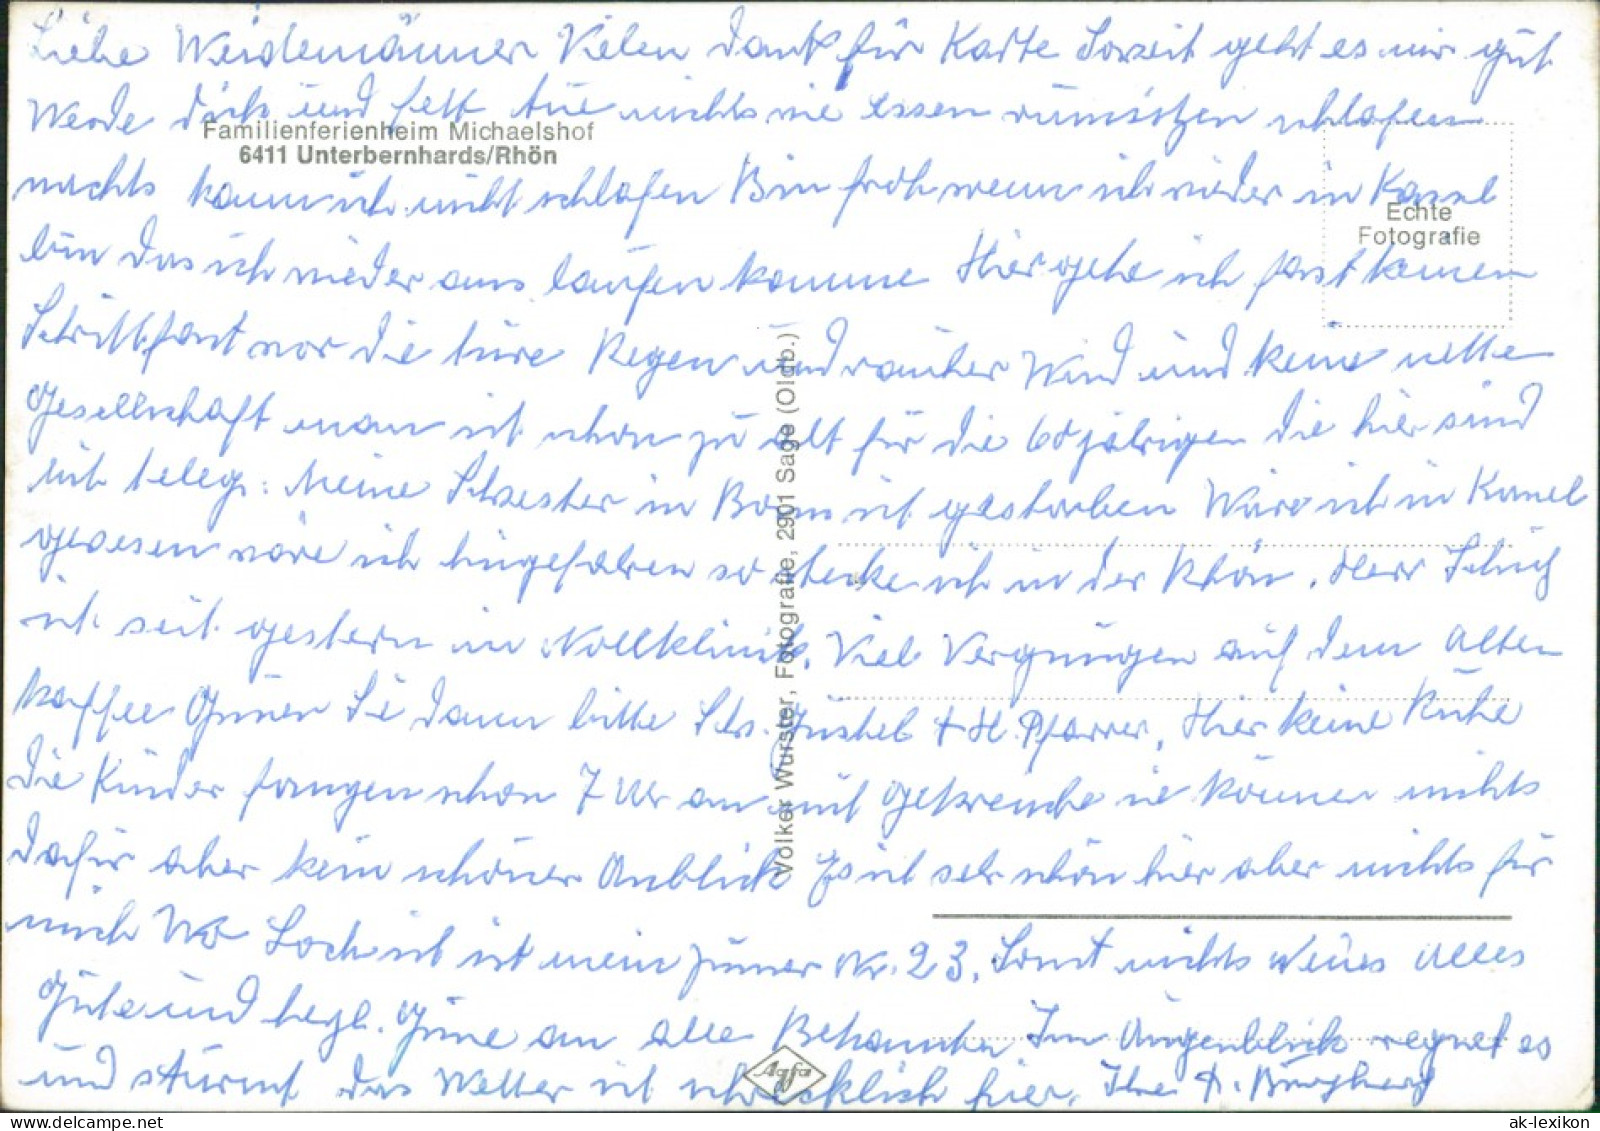 Liebe Weidemänner Vielen Dank für Karte Sorzeit geht es mir gut
Werde dick und fett tue nichts wie essen rumsitzen schlafen
Familienferienheim Michaelshof
6411 Unterbernhards/Rhön
nachts kann ich nicht schlafen Bin froh wenn ich wieder in Kassel
Echte
Fotografie
bin das ich wieder ans laufen komme Hier gehe ich fast keinen
Schritt fast vor die türe Regen und rauher Wind und keine nette
Gesellschaft man ist schon zu alt für die 60 jährigen die hier sind
mit beleg: Meine Schwester in Bonn ist gestorben Wäre ich in Kassel
gewesen wäre ich hingefahren so stecke ich in der Rhön. Herr
ist seit gestern in Klinik. Viel Vergnügen auf dem Alten
kaffee Grüßen Sie dann bitte Schs. + H. Pfarrer, Hier keine Ruhe
die Kinder fangen schon 7 Ur an mit sie können nichts
dafür aber kein schöner Anblick Es ist sehr schön hier aber nichts für
mich Wo Loch ist ist mein zimmer Nr. 23. Sonst nichts Neues alles
Gute und hrzl. Grüße an alle Bekannte Im Augenblick regnet es
und stürmt das Wetter ist schrecklich hier. Ihre
Volker Wurster, Fotografie, 2901 Sage (Oldb.)
Agfa
ak-lexikon